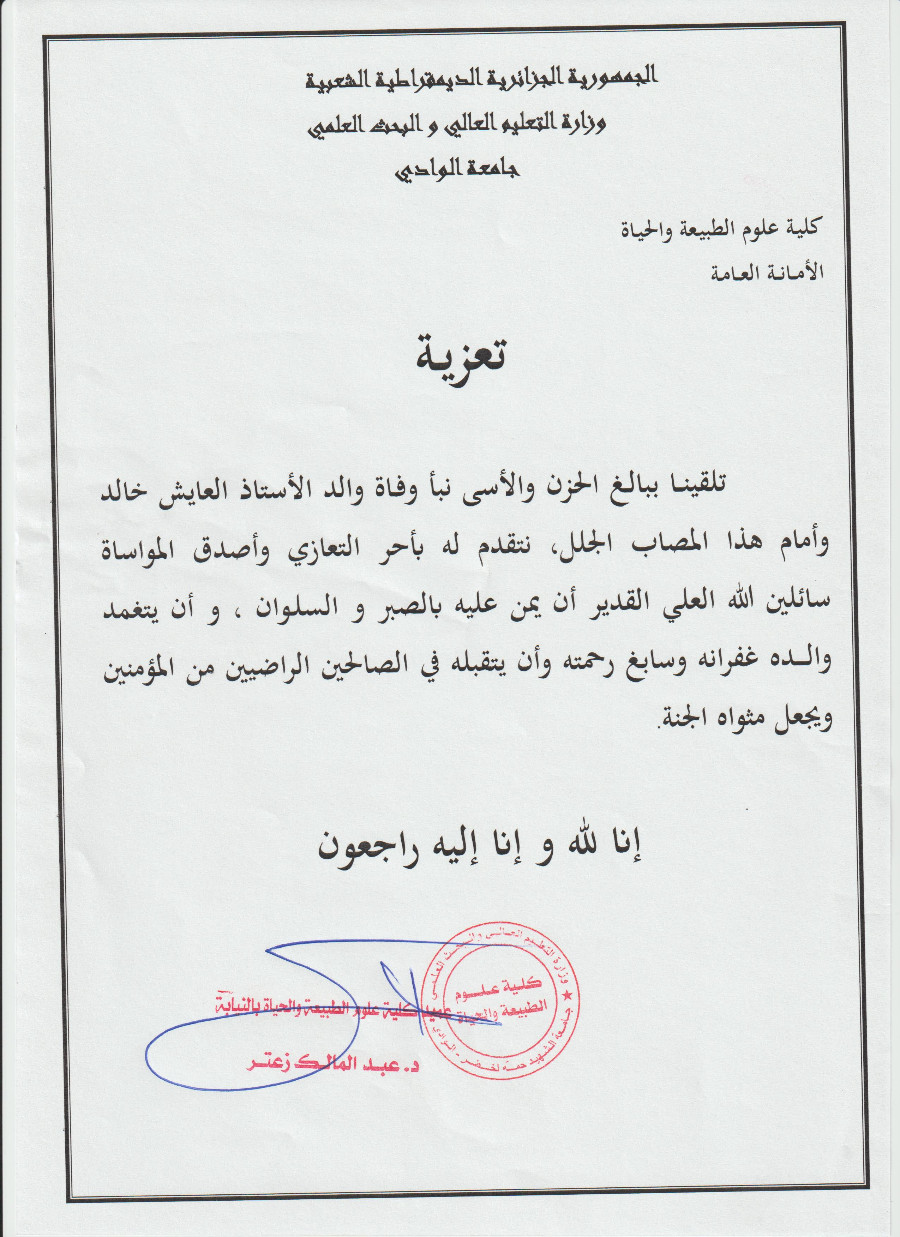 الجمهورية الجزائرية الديمقراطية الشعبية
وزارة التعليم العالي و البحث العلمي
جامعة الوادي
كلية علوم الطبيعة والحياة
الأمانة العامة
تعزية
تلقينا ببالغ الحزن والأسى نبأ وفاة والد الأستاذ العايش خالد
وأمام هذا المصاب الجلل، نتقدم له بأحر التعازي وأصدق المواساة
سائلين الله العلي القدير أن يمن عليه بالصبر و السلوان ، و أن يتغمد
والـده غفرانه وسابغ رحمته وأن يتقبله في الصالحين الراضيين من المؤمنين
ويجعل مثواه الجنة.
إنا لله و إنا إليه راجعون
وزارة التعليم العالي و البحث العلمي
كلية علوم
الطبيعة والحياة
جامعة الشهيد حمه لخضر - الوادي
عميد كلية علوم الطبيعة والحياة بالنيابة
د. عبد المالك زعتر